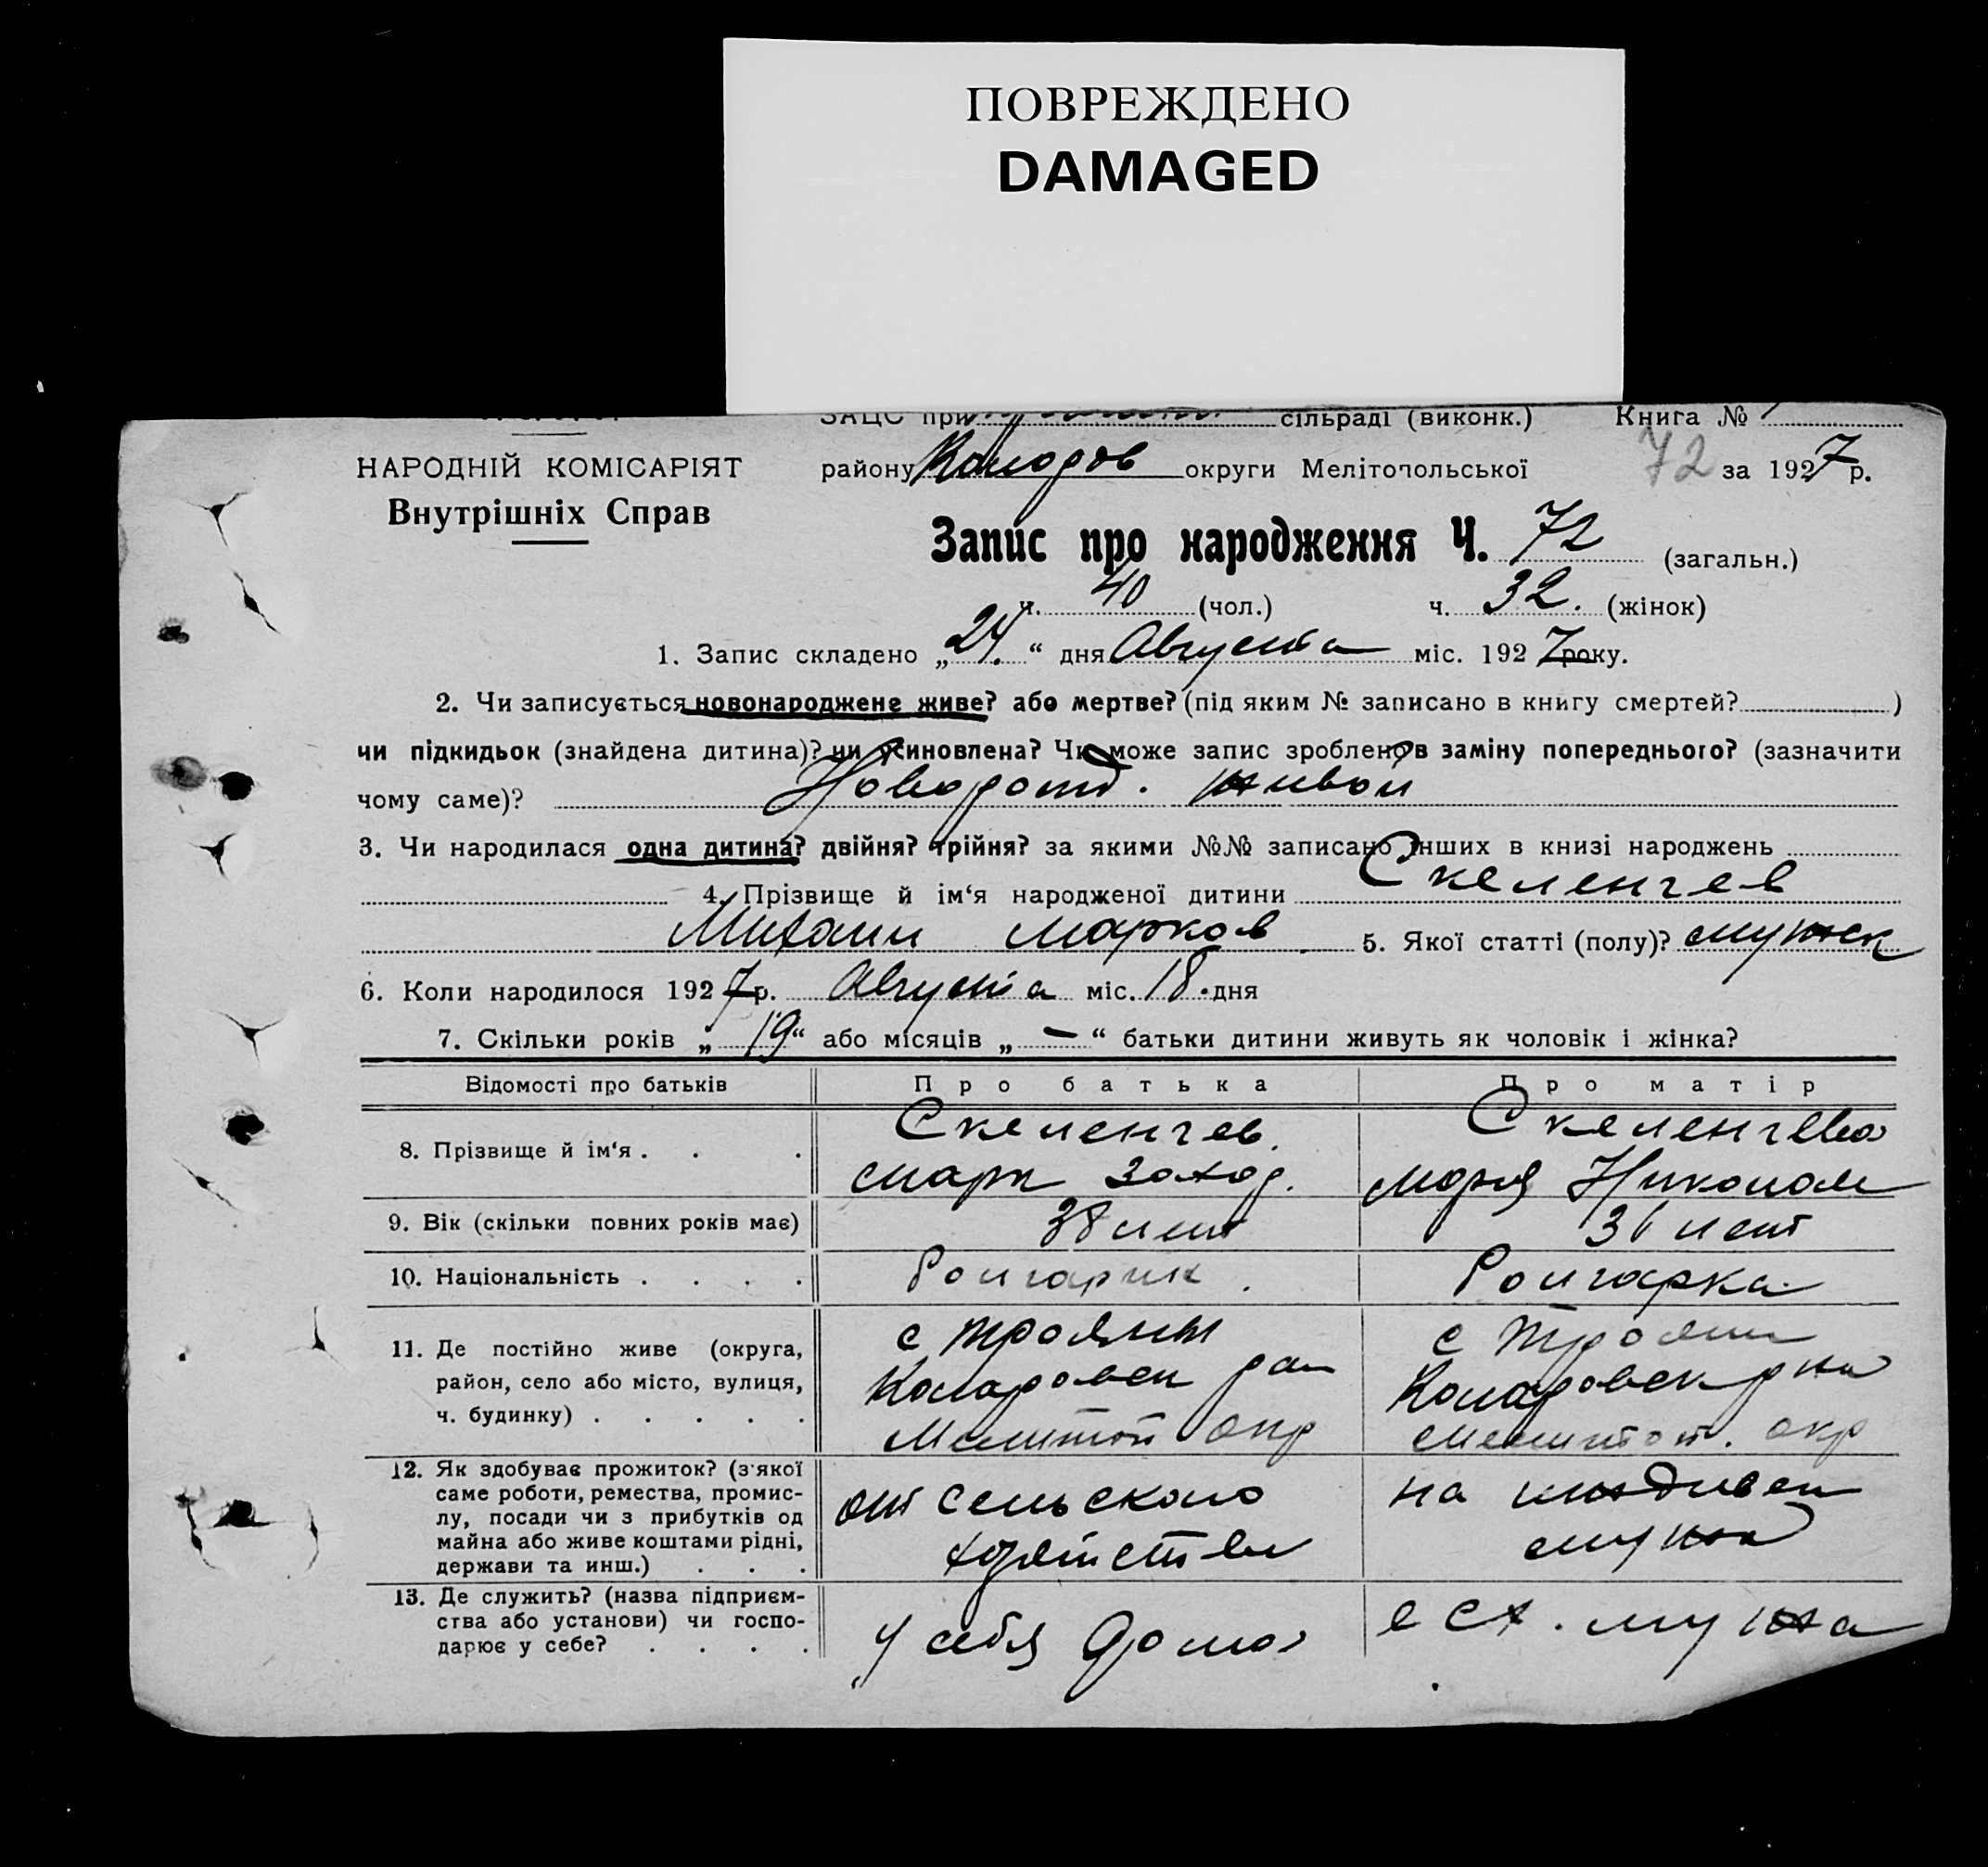 ПОВРЕЖДЕНО
DAMAGED
ЗАЦС при сільраді (виконк.) Книга №
НАРОДНІЙ КОМІСАРІЯТ
Внутрішніх Справ
району Коларов округи Мелітопольської 72 за 1927 р.
Запис про народження Ч. 72 (загальн.)
ч. 40 (чол.) ч. 32. (жінок)
1. Запис складено „24.“ дня Августа міс. 1927 року.
2. Чи записується новонароджене живе? або мертве? (під яким № записано в книгу смертей? )
чи підкидьок (знайдена дитина)? чи усиновлена? Чи може запис зроблено в заміну попереднього? (зазначити
чому саме)? Новорожд. живой
3. Чи народилася одна дитина? двійня? трійня? за якими №№ записано інших в книзі народжень
4. Прізвище й ім‘я народженої дитини Скеленчев
Михаил Марков 5. Якої статті (полу)? мужск
6. Коли народилося 1927 р. Августа міс. 18. дня
7. Скільки років „19“ або місяців „—“ батьки дитини живуть як чоловік і жінка?
Відомості про батьків Про батька Про матір
8. Прізвище й ім‘я . . .
Скеленчев.
Марк Захар.
Скеленчева
Мария Николае
9. Вік (скільки повних років має) 38 лет 36 лет
10. Національність . . . . Болгарин . Болгарка
11. Де постійно живе (округа,
район, село або місто, вулиця,
ч. будинку) . . . . .
с Трояны
Коларовск ран
Мелитоп окр
с Трояны
Коларовск рна
Мелитоп. окр
12. Як здобуває прожиток? (з якої
саме роботи, ремества, промис-
лу, посади чи з прибутків од
майна або живе коштами рідні,
держави та инш.) . . .
от сельского
хозяйства
на иждивен
мужа
13. Де служить? (назва підприєм-
ства або установи) чи госпо-
дарює у себе? . . . .
у себя дома
в сх. мужа